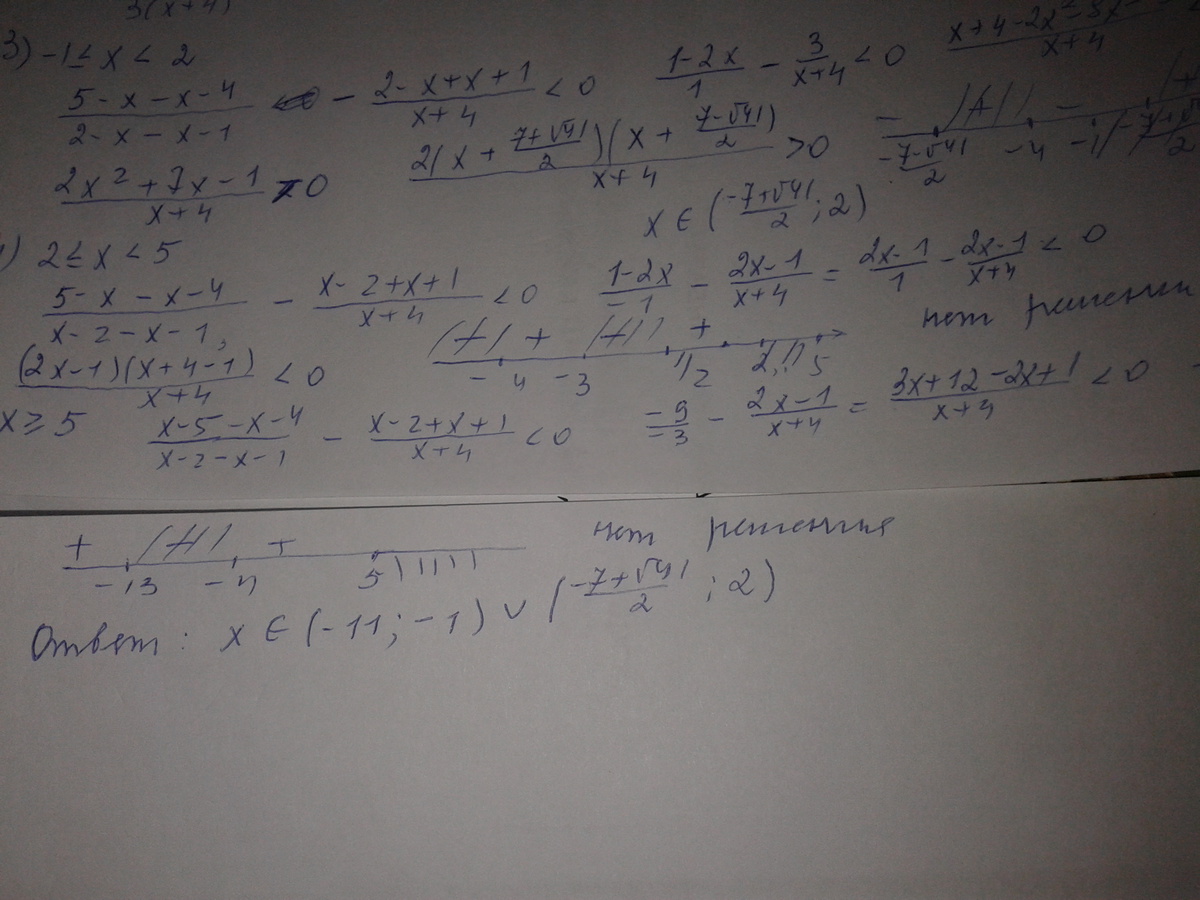 3(x+4)
3) -1 ≤ x < 2
(5-x-x-4)/(2-x-x-1) - (2-x+x+1)/(x+4) < 0 (1-2x)/1 - 3/(x+4) < 0 (x+4-2x²-8x-3)/(x+4)
(2x²+7x-1)/(x+4) > 0 2(x + (7+√41)/2)(x + (7-√41)/2)/(x+4) > 0 - /+/ - + (-7-√41)/2 -4 -1 (-7+√41)/2
x ∈ ((-7+√41)/2; 2)
) 2 ≤ x < 5
(5-x-x-4)/(x-2-x-1) - (x-2+x+1)/(x+4) < 0 (1-2x)/-1 - (2x-1)/(x+4) = (2x-1)/1 - (2x-1)/(x+4) < 0
((2x-1)(x+4-1))/(x+4) < 0 /-/ + /-/ + -4 -3 1/2 2 5 нет решении
x ≥ 5 (x-5-x-4)/(x-2-x-1) - (x-2+x+1)/(x+4) < 0 -9/-3 - (2x-1)/(x+4) = (3x+12-2x+1)/(x+4) < 0
+ /-/ + -13 -4 5 нет решения
Ответ: x ∈ (-11; -1) ∪ ((-7+√41)/2; 2)